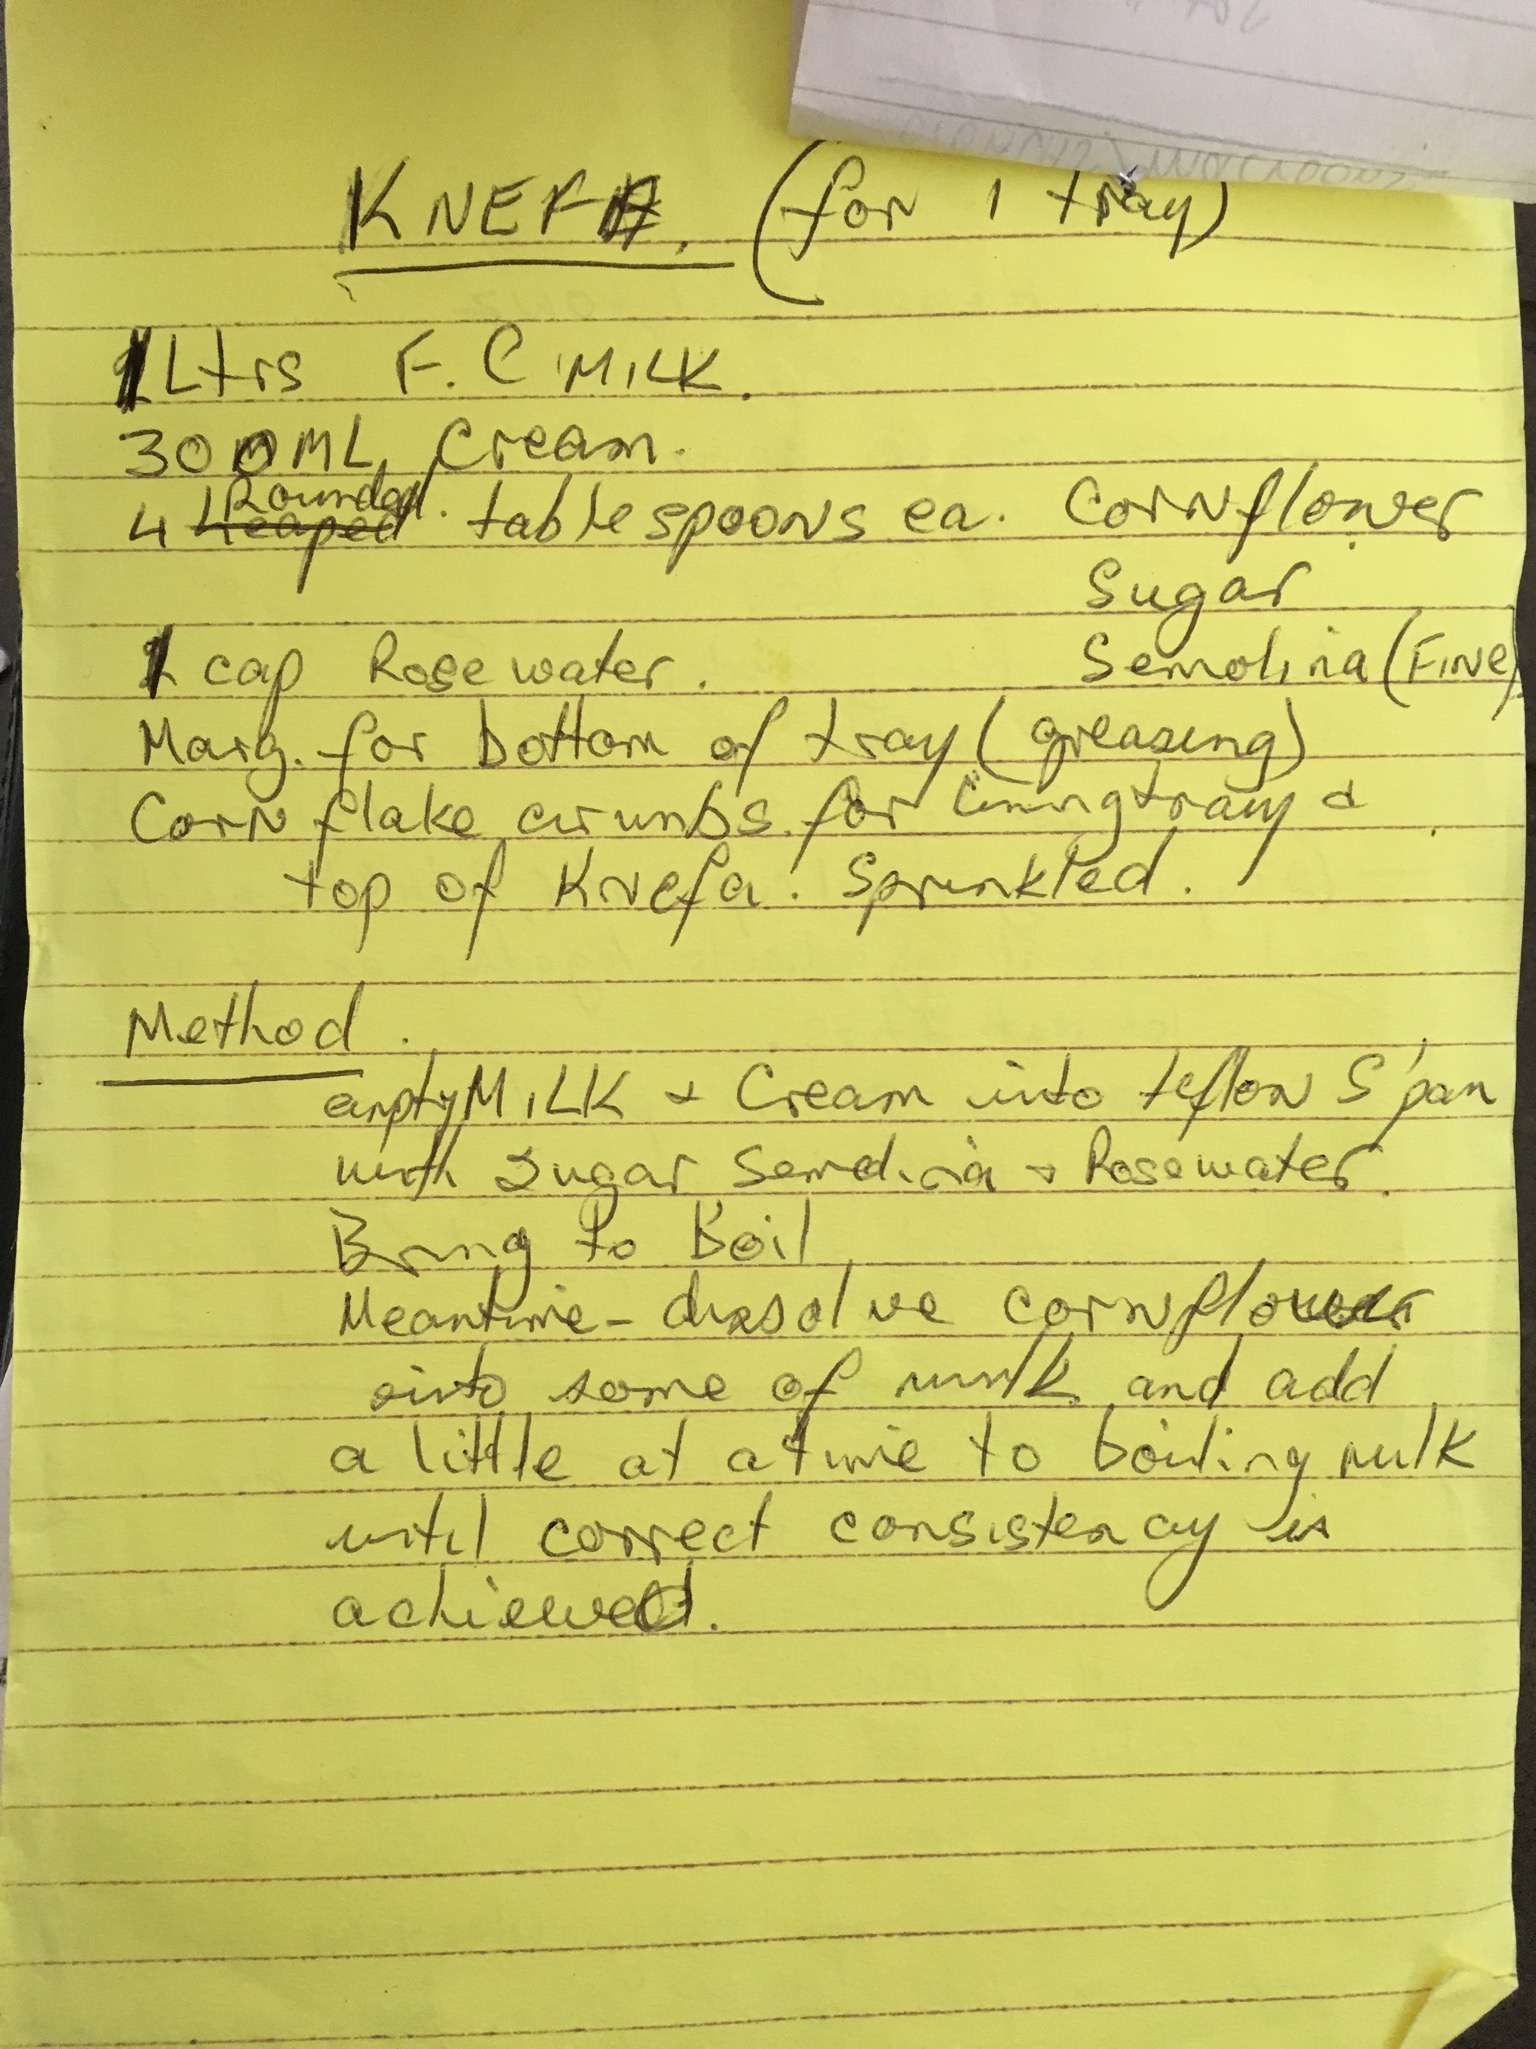 KNEFA. (for 1 tray)
1 Ltrs F.C MILK.
300ML Cream.
4 Heaped Rounded. tablespoons ea. Cornflower
Sugar
Semolina (FINE)
1 cap Rosewater.
Marg. for bottom of tray (greasing)
Corn flake crumbs for lining tray &
top of Knefa. Sprinkled.
Method.
empty MILK + Cream into teflon S'pan
with Sugar Semolina + Rosewater.
Bring to Boil
Meantime - dissolve cornflower
into some of milk and add
a little at a time to boiling milk
until correct consistency is
achieved.